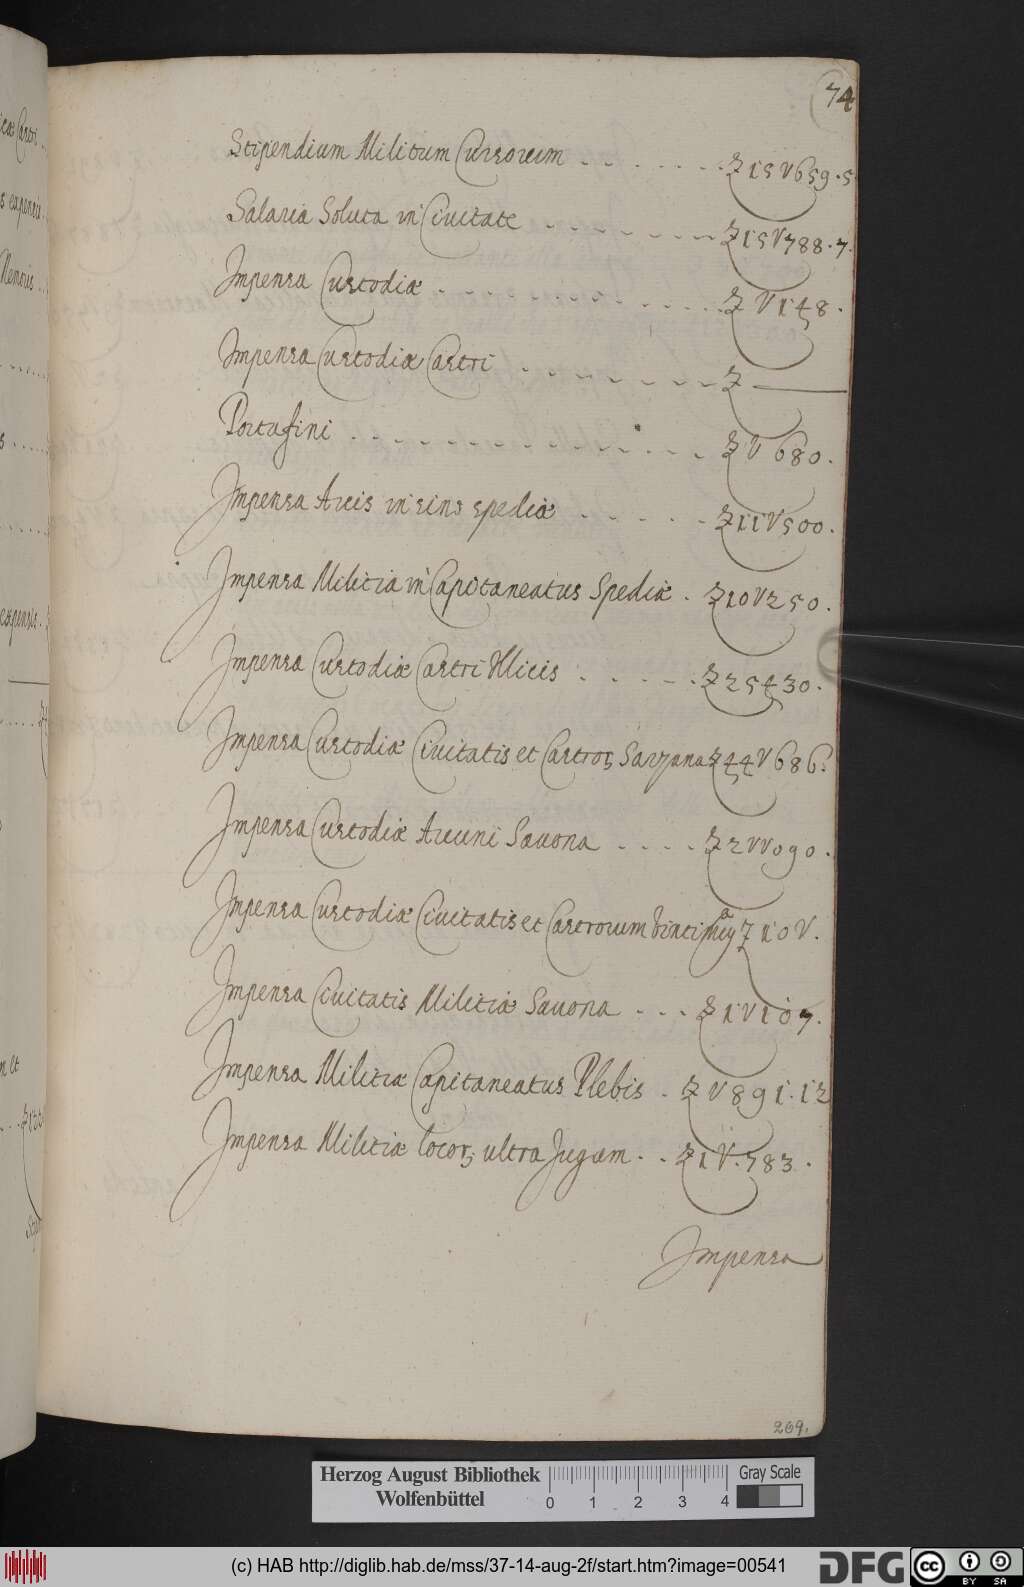 74
Stipendium Militum Cursorum . . . . . . . £ 15 V 659. 5.
Salaria Soluta in Ciuitate . . . . . . . . £ 15 V 788. 7.
Impensa Custodiæ . . . . . . . . . . . £ V 148.
Impensa Custodiæ Castri . . . . . . . . £ ———
Portusfini . . . . . . . . . . . . . . £ V 680.
Impensa Arcis in sinu spediæ . . . . . £ 11 V 500.
Impensa Militia in Capitaneatus Spediæ . £ 10 V 250.
Impensa Custodiæ Castri Illicis . . . . . £ 25430.
Impensa Custodiæ Ciuitatis et Castror; Sarzana £ 44 V 686.
Impensa Custodiæ Sauona . . . . £ 2 090.
Impensa Custodiæ Ciuitatis et Castrorum £ 10 V.
Impensa Ciuitatis Militiæ Sauona . . . £ 1 V 107.
Impensa Militiæ Capitaneatus Plebis . £ V 891. 12
Impensa Militiæ locor; ultra Jugum . . £ 1 V. 783.
Impensa
269.
icæ Castri
Nemoris
expensis
n et
Herzog August Bibliothek
Wolfenbüttel
0 1 2 3 4
Gray Scale
(c) HAB http://diglib.hab.de/mss/37-14-aug-2f/start.htm?image=00541
DFG
cc BY SA